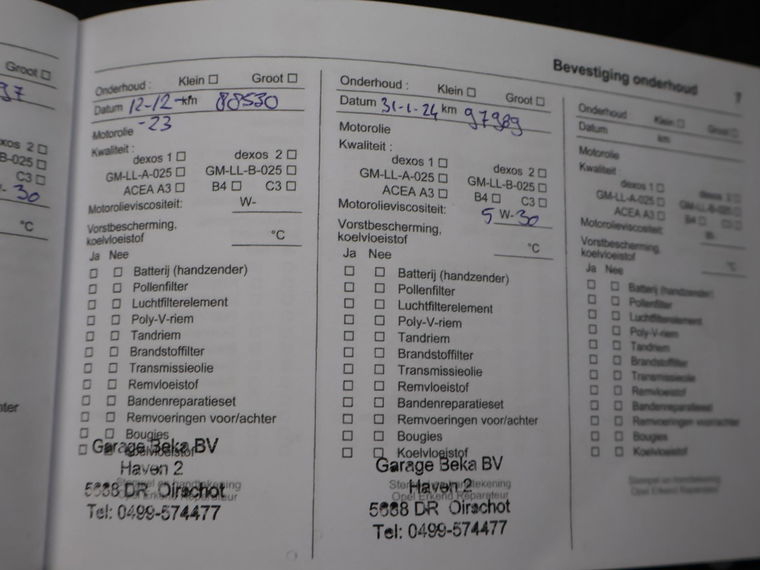 Bevestiging onderhoud 7
Groot ☐
dexos 2 ☐
B-025 ☐
C3 ☐
30
°C
Onderhoud : Klein ☐ Groot ☐
Datum 12-12 -23 km 88530
Motorolie
Kwaliteit :
dexos 1 ☐ dexos 2 ☐
GM-LL-A-025 ☐ GM-LL-B-025 ☐
ACEA A3 ☐ B4 ☐ C3 ☐
Motorolieviscositeit: W-
Vorstbescherming,
koelvloeistof °C
Ja Nee
☐ ☐ Batterij (handzender)
☐ ☐ Pollenfilter
☐ ☐ Luchtfilterelement
☐ ☐ Poly-V-riem
☐ ☐ Tandriem
☐ ☐ Brandstoffilter
☐ ☐ Transmissieolie
☐ ☐ Remvloeistof
☐ ☐ Bandenreparatieset
☐ ☐ Remvoeringen voor/achter
☐ ☐ Bougies
☐ ☐ Koelvloeistof
Garage Beka BV
Haven 2
Stempel en handtekening
5688 DR Oirschot
Opel Erkend Reparateur
Tel: 0499-574477
Onderhoud : Klein ☐ Groot ☐
Datum 31-1-24 km 97989
Motorolie
Kwaliteit :
dexos 1 ☐ dexos 2 ☐
GM-LL-A-025 ☐ GM-LL-B-025 ☐
ACEA A3 ☐ B4 ☐ C3 ☐
Motorolieviscositeit: 5 W-30
Vorstbescherming,
koelvloeistof °C
Ja Nee
☐ ☐ Batterij (handzender)
☐ ☐ Pollenfilter
☐ ☐ Luchtfilterelement
☐ ☐ Poly-V-riem
☐ ☐ Tandriem
☐ ☐ Brandstoffilter
☐ ☐ Transmissieolie
☐ ☐ Remvloeistof
☐ ☐ Bandenreparatieset
☐ ☐ Remvoeringen voor/achter
☐ ☐ Bougies
☐ ☐ Koelvloeistof
Garage Beka BV
Haven 2
Stempel en handtekening
5688 DR Oirschot
Opel Erkend Reparateur
Tel: 0499-574477
Onderhoud : Klein ☐ Groot ☐
Datum km
Motorolie
Kwaliteit :
dexos 1 ☐ dexos 2 ☐
GM-LL-A-025 ☐ GM-LL-B-025 ☐
ACEA A3 ☐ B4 ☐ C3 ☐
Motorolieviscositeit:
Vorstbescherming,
koelvloeistof °C
Ja Nee
☐ ☐ Batterij (handzender)
☐ ☐ Pollenfilter
☐ ☐ Luchtfilterelement
☐ ☐ Poly-V-riem
☐ ☐ Tandriem
☐ ☐ Brandstoffilter
☐ ☐ Transmissieolie
☐ ☐ Remvloeistof
☐ ☐ Bandenreparatieset
☐ ☐ Remvoeringen voor/achter
☐ ☐ Bougies
☐ ☐ Koelvloeistof
Stempel en handtekening
Opel Erkend Reparateur